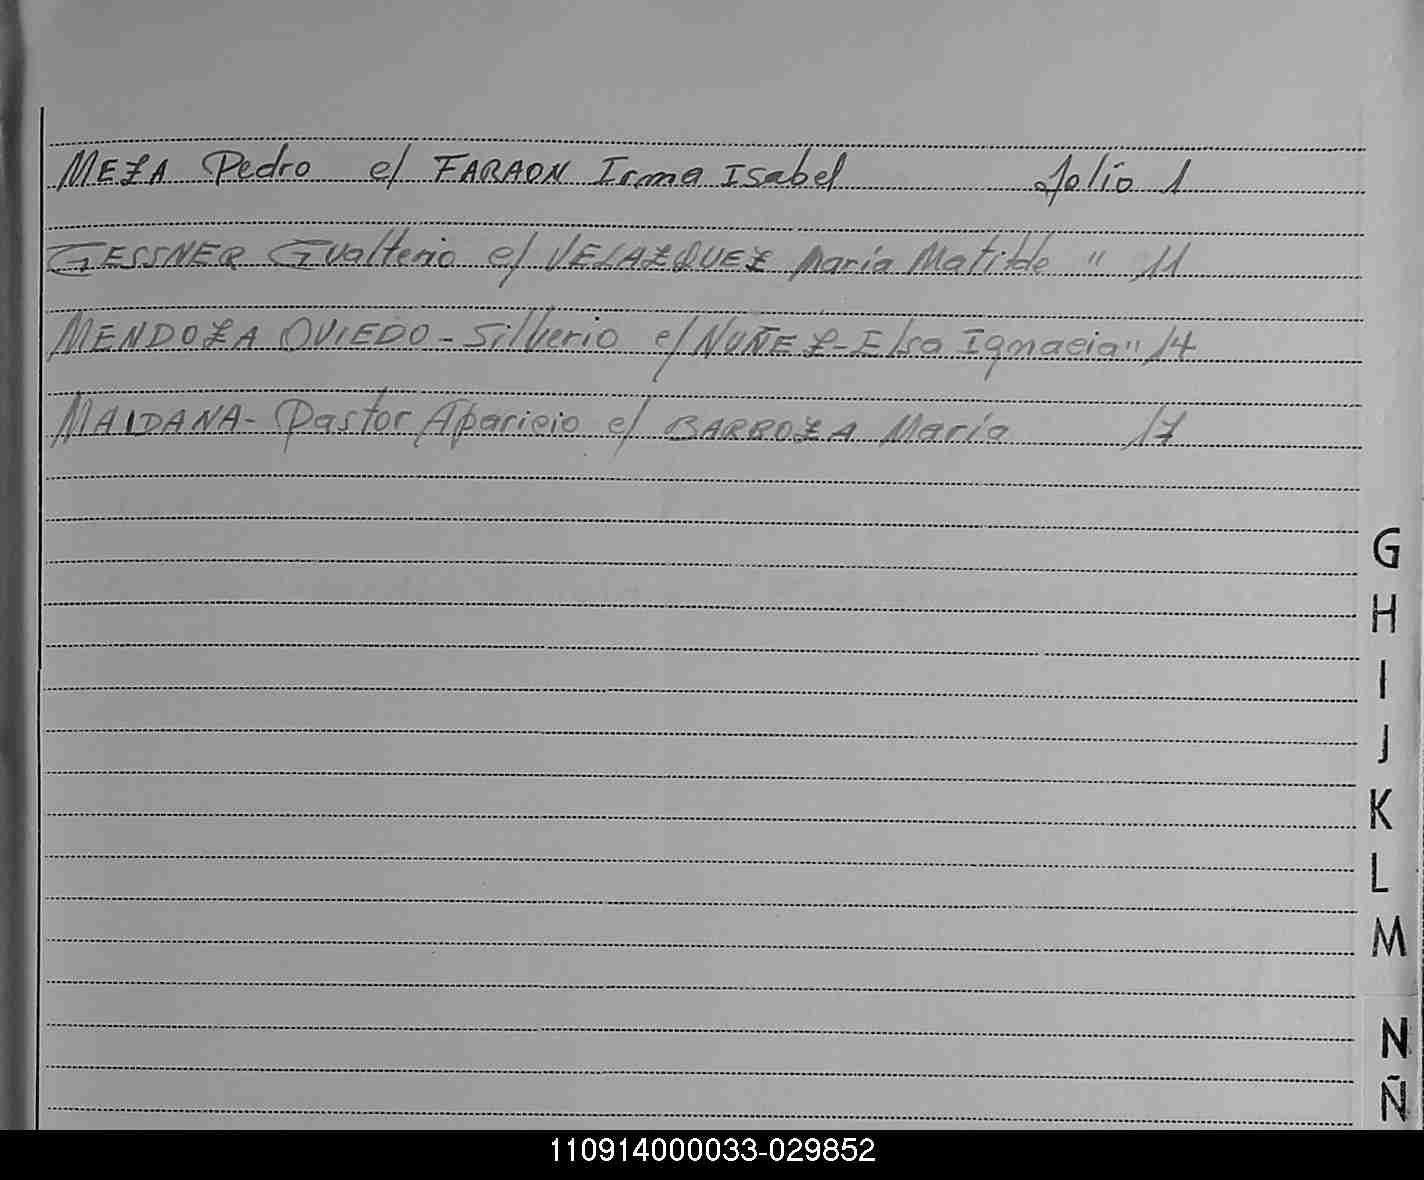 MEZA Pedro c/ FARAON Irma Isabel Folio 1
GESSNER Gualterio c/ VELAZQUEZ María Matilde " 11
MENDOZA OVIEDO - Silverio c/ NUÑEZ - Elsa Ignacia " 14
MAIDANA - Pastor Aparicio c/ BARBOZA María 17
G
H
I
J
K
L
M
N
Ñ
110914000033-029852